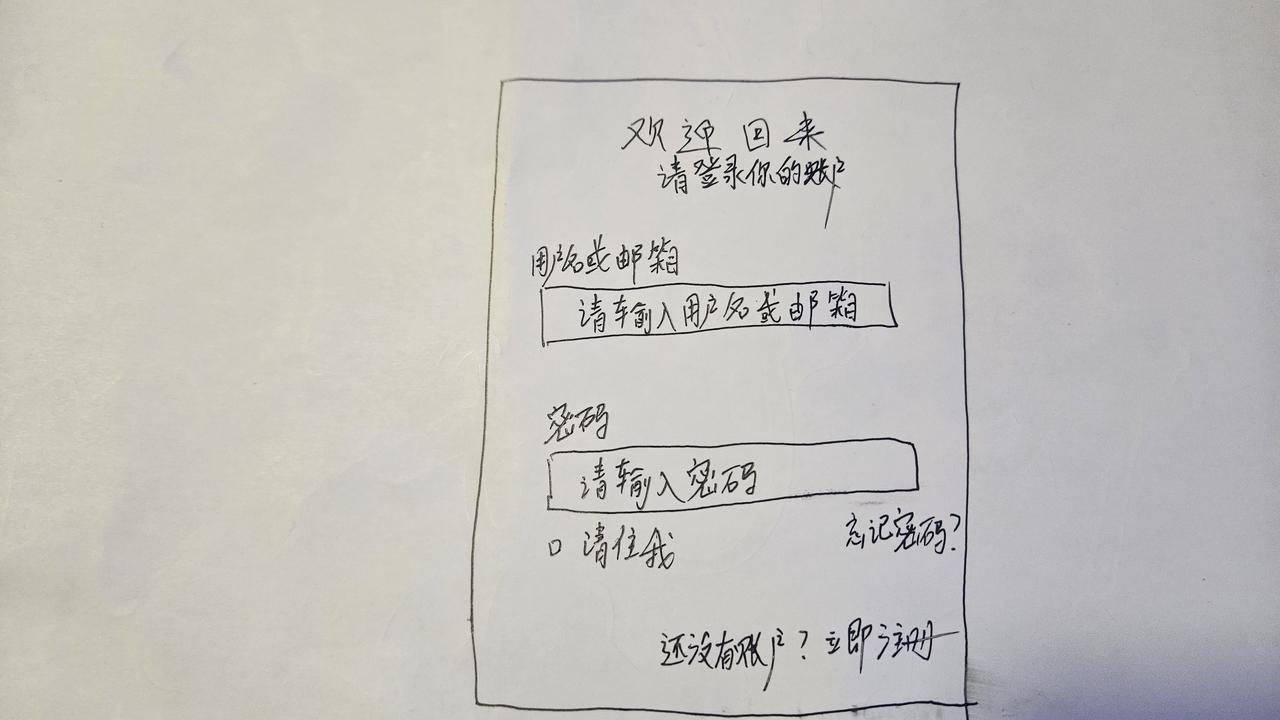 欢迎回来
请登录你的账户
用户名或邮箱
请输入用户名或邮箱
密码
请输入密码
请住我
忘记密码?
还没有账户?立即注册